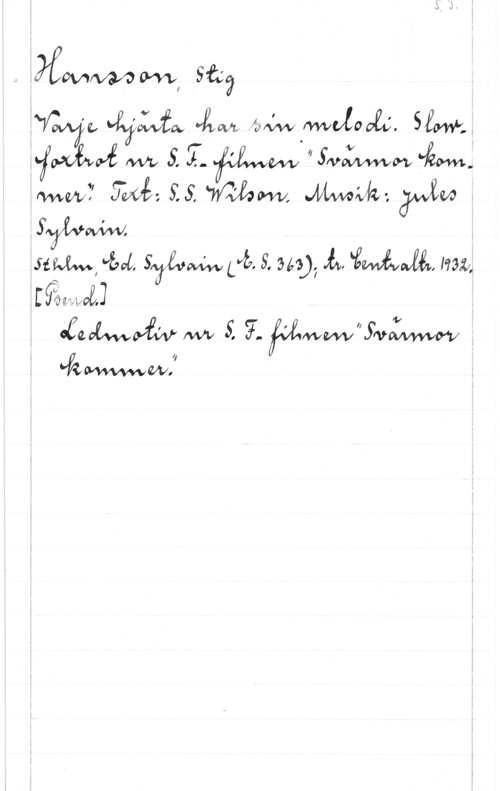 S. J.
Hansson, Stig
Varje hjärta har sin melodi. Slow-
foxtrot ur S.F.-filmen "Svärmor kom-
mer". Text: S.S. Wilson. Musik: Jules
Sylvain.
Sthlm, Ed. Sylvain (E.S. 363); tr. Centraltr. 1932.
[Pseud.]
Ledmotiv ur S.F.-filmen "Svärmor
kommer".